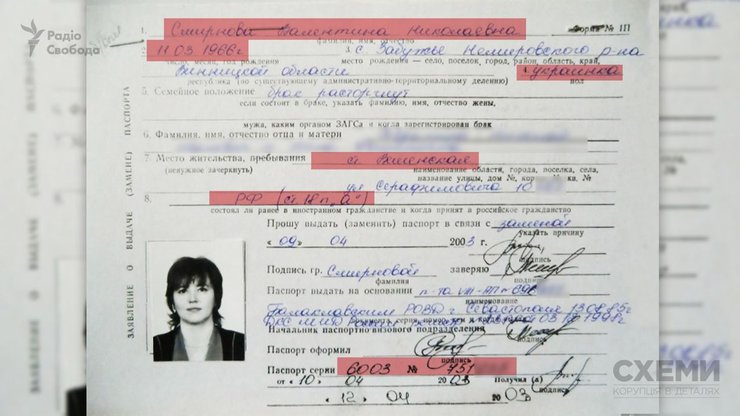 Радіо
Свобода
Форма № 1П
1. Смирнова Валентина Николаевна
фамилия, имя, отчество
11.03.1966г с. Забужье Немировского р-на
число, месяц, год рождения место рождения — село, поселок, город, район, область, край,
Винницкой области украинка
республика (по существующему административно-территориальному делению) пол
5. Семейное положение брак расторгнут
если состоит в браке, указать фамилию, имя, отчество жены,
мужа, каким органом ЗАГСа и когда зарегистрирован брак
6. Фамилия, имя, отчество отца и матери
7. Место жительства, пребывания ст.
(ненужное зачеркнуть) наименование области, города, поселка, села,
название улицы, дом №, кор кв. №
ул Серафимовича 10
8. РФ (ст. 18 п. "а")
состоял ли ранее в иностранном гражданстве и когда принят в российское гражданство
Прошу выдать (заменить) паспорт в связи с заменой
указать причину
« 09 » 04 2003 г.
подпись
Подпись гр. Смирновой заверяю
фамилия подпись
Паспорт выдать на основании п-та VIII-АП №
наименование
Балаклавским РОВД г. Севастополя 13.08.85г
документа, серия, номер, кем и когда
Начальник паспортно-визового подразделения
подпись
Паспорт оформил
подпись
Паспорт серии 6003 № 751
от « 10 » 04 2003 Получил (а)
« 12 » 04 2003
подпись
ЗАЯВЛЕНИЕ О ВЫДАЧЕ (ЗАМЕНЕ) ПАСПОРТА
СХЕМИ
КОРУПЦІЯ В ДЕТАЛЯХ